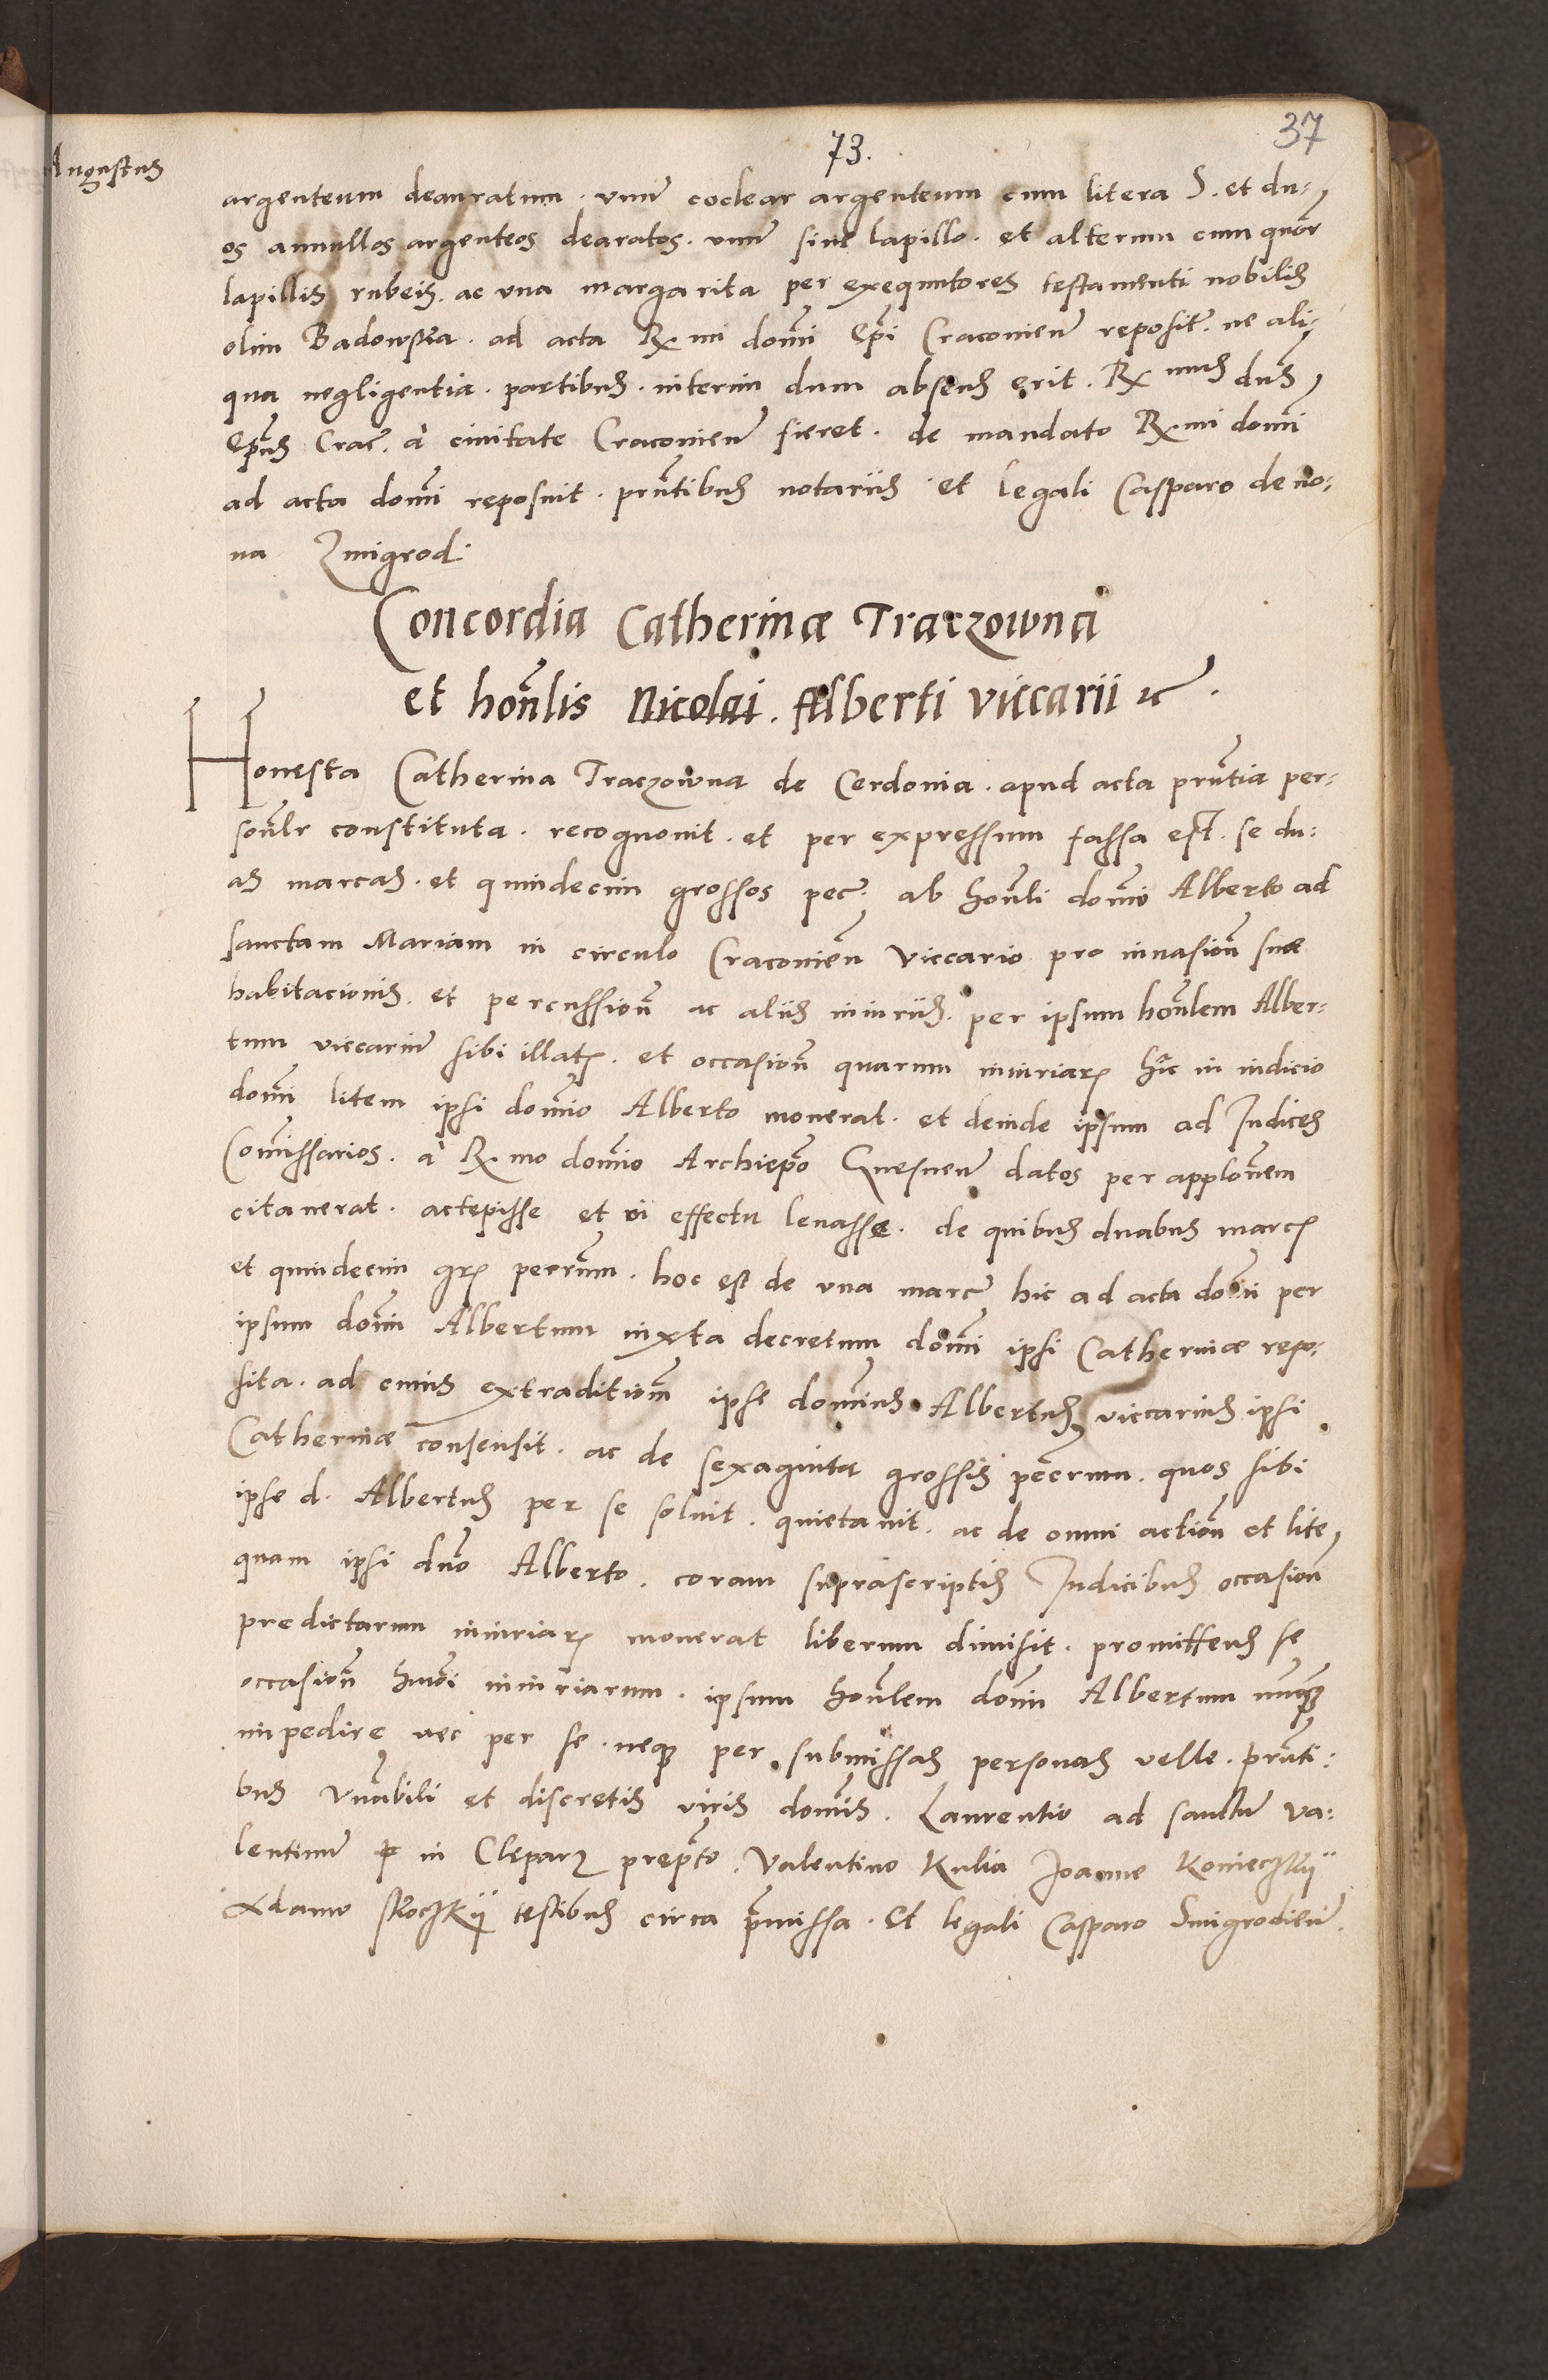 37
73.
Augustus
argenteum deauratum . vnum̃ coclear argenteum cum litera S . et du-
os annullos argenteos dearatos . vnũ sine lapillo . et alterum cum quor̃
lapillis rubeis . ac vna margarita per exequutores testamenti nobilis
olim Badowska . ad acta Rx mi domĩ Ep̃i Cracouieñ reposit̃ . ne ali-
qua negligentia . partibus . interim dum absens erit . Rx mus dñs
Ep̃us Crac̃ . a ciuitate Cracouieñ fieret . de mandato Rx mi domĩ
ad acta domĩ reposuit . pñtibus notariis . et legali Casparo de no-
ua Zmigrod .
Concordia Catherinæ Traczowna
et honl̃is Nicolai . Alberti viccarii etc .
Honesta Catherina Traczowna de Cerdonia . apud acta pñtia per-
sonl̃r constituta . recognouit . et per expressum fassa est . se du-
as marcas . et quindecim grossos pec̃ . ab honl̃i domĩo Alberto ad
sanctam Mariam in circulo Cracouieñ viccario pro inuasioñ suæ
habitacionis . et percussioñ ac aliis iniuriis . per ipsum honl̃em Alber-
tum viccariũ sibi illatꝝ . et occasioñ quarum iniuriarꝝ hic in iudicio
domĩ litem ipsi domĩo Alberto mouerat . et deinde ipsum ad Iudices
Com̃issarios . a Rx mo domĩo Archiep̃o Gnesneñ datos per applõnem
citauerat . accepisse et in effectu leuasse . de quibus duabus marcꝭ
et quindecim grꝭ pecrũm . hoc est de vna marc̃ hic ad acta domĩ per
ipsum domĩ Albertum iuxta decretum domĩ ipsi Catherinæ repo-
sita . ad cuius extraditioñ ipse domĩus Albertus viccarius ipsi
Catherinæ consensit . ac de sexaginta grossis pec̃rum . quos sibi
ipse d . Albertus per se soluit . quietauit . ac de omni actioñ et lite
quam ipsi dño Alberto . coram suprascriptis Iudicibus occasioñ
predictarum iniuriarꝝ mouerat liberum dimisit . promittens se
occasioñ hmõi iniuriarum . ipsum honl̃em domĩ Albertum nunq̃ꝫ
inpedire nec per se . neqꝫ per submissas personas velle . pñti-
bus Vnãbili et discretis viris domĩs . Laurentio ad sanctũ Va-
lentinũ in Clepar͛ prep̃to . Valentino Kulia Ioanne Konieczkij
Adamo skoczkij testibus circa p̃missa . Et legali Casparo Smigrodieñ .